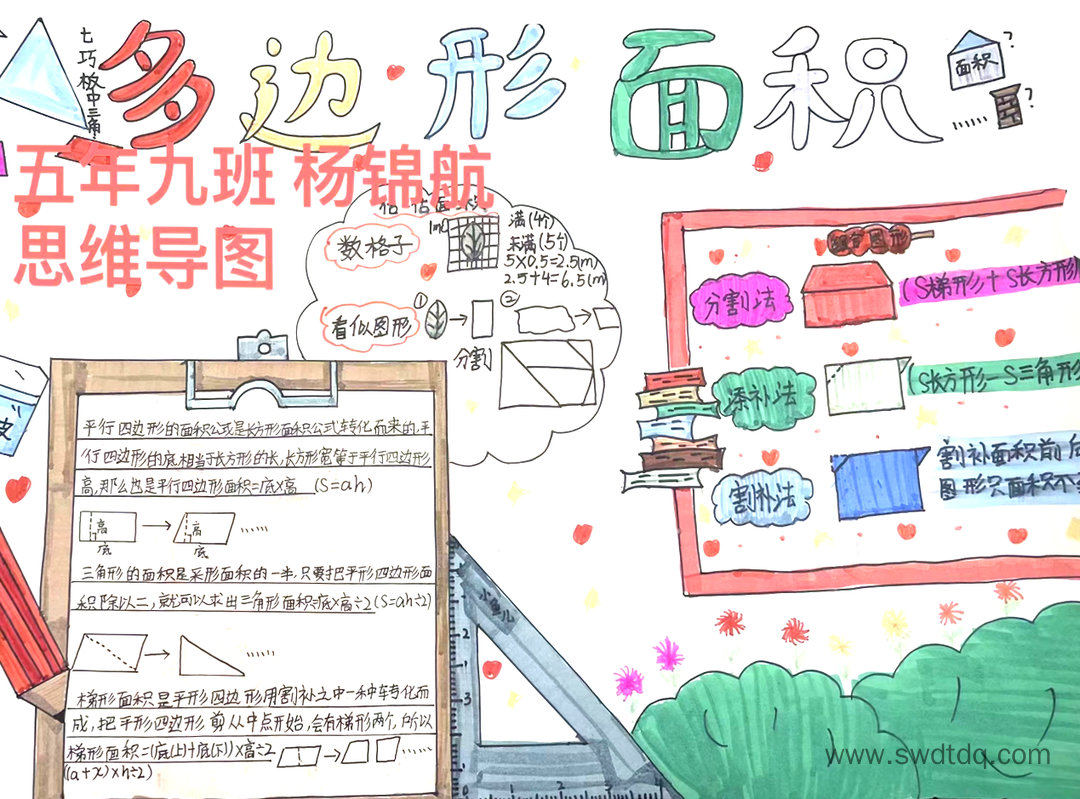 七巧板中三角
多边形面积
面积
?
?
五年九班 杨锦航
思维导图
数格子
1m
满(4个)
未满(5个)
5×0.5=2.5(m)
2.5+4=6.5(m
看似图形
①
②
分割
组合图形
分割法
(S梯形+S长方形
添补法
(S长方形-S三角形
割补法
割补面积前后
图形只面积不
平行四边形的面积公式是长方形面积公式转化而来的,平
行四边形的底相当于长方形的长,长方形宽等于平行四边形
高,那么也是平行四边形面积=底×高 (S=ah)
高
底
高
底
三角形的面积是采形面积的一半,只要把平形四边形面
积除以二,就可以求出三角形面积=底×高÷2(S=ah÷2)
梯形面积是平形四边形用割补之中一种转化而
成,把平形四边形剪从中点开始,会有梯形两个,所以
梯形面积=(底(上)+底(下))×高÷2
(a+x)×h÷2)
小鱼儿
2
1
3
0
1
2
3
www.swdtdq.com